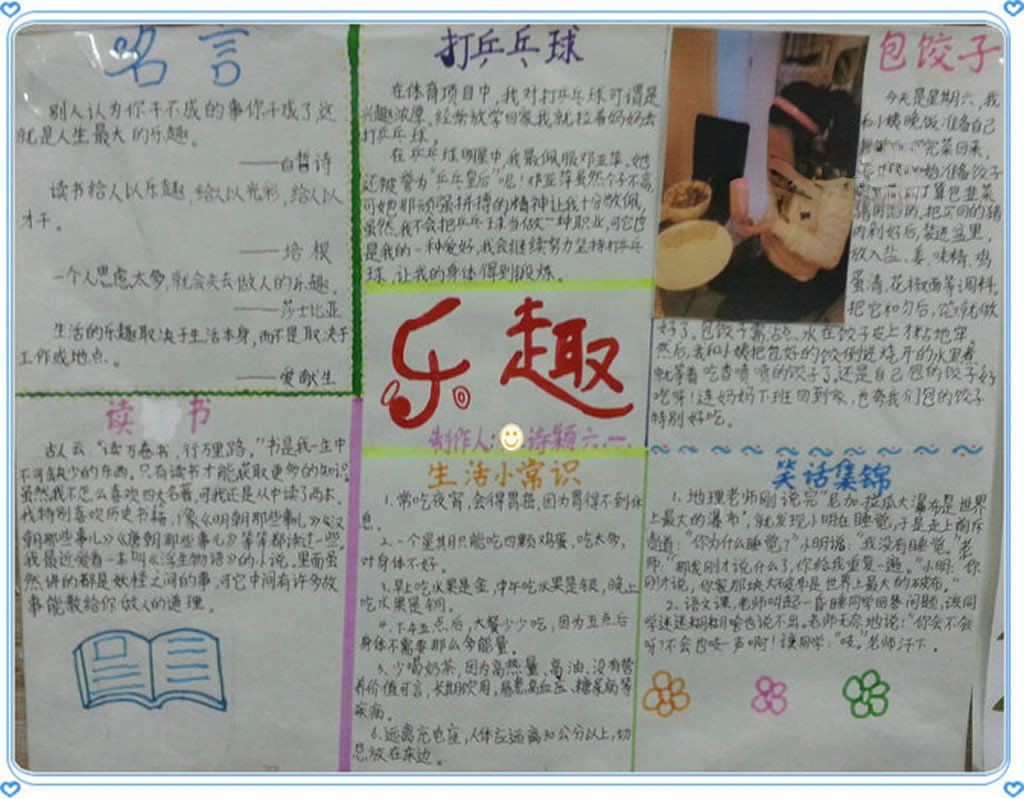 名言
别人认为你干不成的事你干成了,这
就是人生最大的乐趣。
——白哲诗
读书给人以乐趣,给人以光彩,给人以
才干。
——培根
一个人思虑太多,就会失去做人的乐趣。
——莎士比亚
生活的乐趣取决于生活本身,而不是取决于
工作或地点。
——爱献生
读书
古人云:“读万卷书,行万里路。”书是我一生中
不可缺少的东西。只有读书才能获取更多的知识。
虽然我不怎么喜欢四大名著,可我还是从中读了两本。
我特别喜欢历史书籍,像《明朝那些事儿》《汉
朝那些事儿》《唐朝那些事儿》等等都读过一些。
我最近爱看一本叫《浮生物语》的小说,里面虽
然讲的都是妖怪之间的事,可它中间有许多故
事能教给你做人的道理。
打乒乓球
在体育项目中,我对打乒乓球可谓是
兴趣浓厚,经常放学回家我就拉着妈妈去
打乒乓球。
在乒乓球明星中,我最佩服邓亚萍。她
还被誉为“乒乓皇后”呢!邓亚萍虽然个子不高,
可她那顽强拼搏的精神让我十分敬佩。
虽然,我不会把乒乓球当做一种职业,可它也
是我的一种爱好,我会继续努力坚持打乒乓
球,让我的身体得到锻炼。
乐趣
制作人: 诗颖 六.一.
生活小常识
1.常吃夜宵,会得胃癌,因为胃得不到休
息。
2.一个星期只能吃四颗鸡蛋,吃太多,
对身体不好。
3.早上吃水果是金,中午吃水果是银,晚上
吃水果是铜。
4.下午五点后,大餐少少吃,因为五点后
身体不需要那么多能量。
5.少喝奶茶,因为高热量、高油、没有营
养价值可言,长期饮用,易患高血压、糖尿病等
疾病。
6.远离充电座,人体应远离30公分以上,切
忌放在床边。
包饺子
今天是星期六,我
和小姨晚饭准备自己
完菜回来,
准备饺子
算包韭菜
把买回的猪
肉剁好后,装进盆里,
放入盐、姜、味精、鸡
蛋清、花椒面等调料,
把它和匀后,馅就做
好了。包饺子需占点水在饺子皮上才粘地牢。
然后,我和小姨把包好的饺倒进烧开的水里煮,
就等着吃香喷喷的饺子了。还是自己包的饺子好
吃呀!连妈妈下班回到家,也夸我们包的饺子
特别好吃。
笑话集锦
1.地理老师刚说完“尼加拉瓜大瀑布是世界
上最大的瀑布”,就发现小明在睡觉,于是走上前斥
责道:“你为什么睡觉?”小明说:“我没有睡觉。”老
师:“那我刚才说什么了,你给我重复一遍。”小明:“你
刚才说,你家那块大破布是世界上最大的破布。”
2.语文课,老师叫起一昏睡同学回答问题,该同
学迷迷糊糊啥也说不出。老师无奈地说:“你会不会
呀?不会也吱一声啊!”该同学:“吱。”老师汗下。